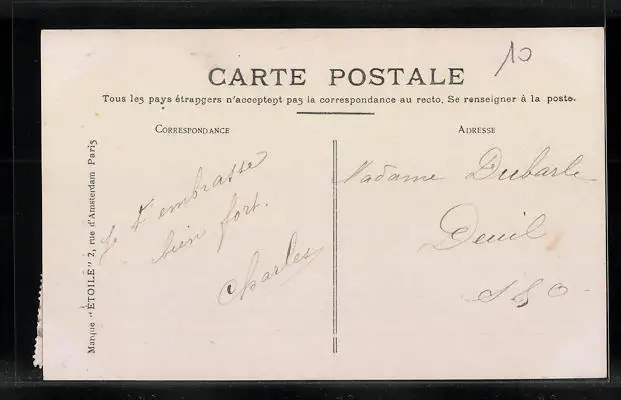 10
CARTE POSTALE
Tous les pays étrangers n'acceptent pas la correspondance au recto. Se renseigner à la poste.
CORRESPONDANCE
ADRESSE
Marque "ÉTOILE" 2, rue d'Amsterdam Paris
Je t'embrasse
bien fort.
Charles
Madame Dubarle
Deuil
S & O